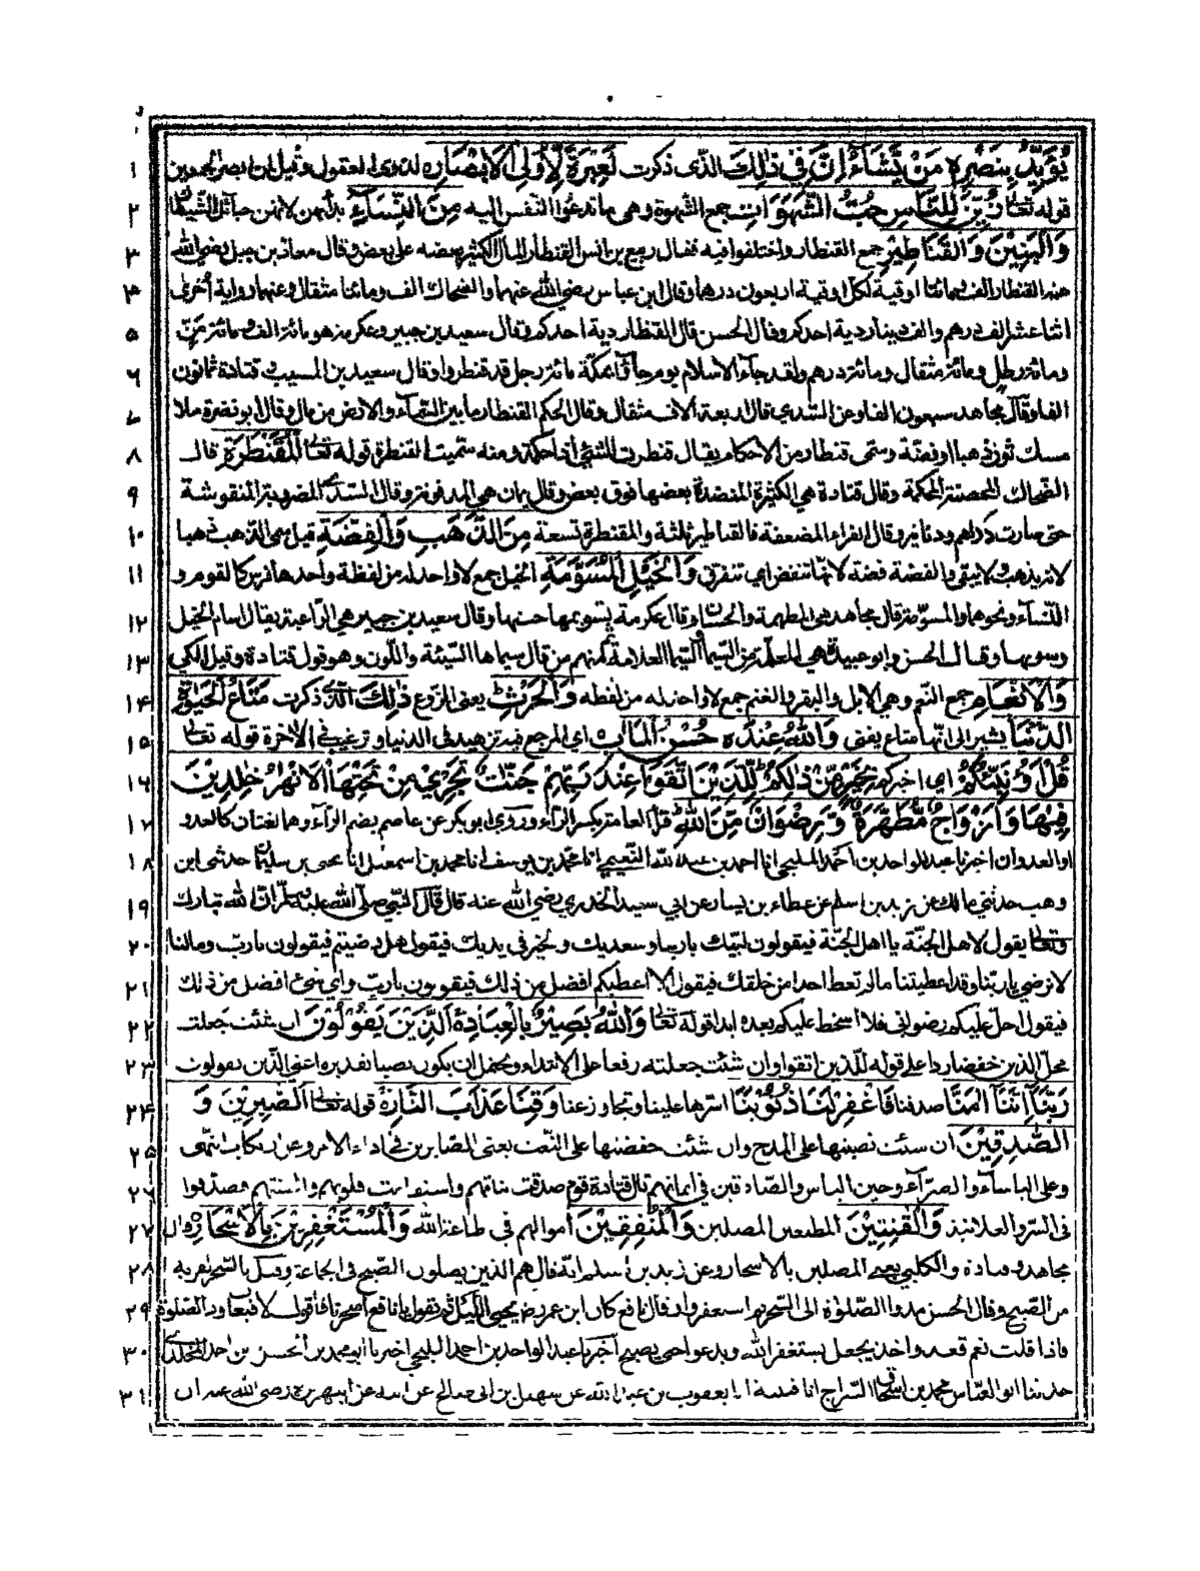 يُؤَيِّدُ بِنَصْرِهٖ مَنْ يَّشَآءُ اِنَّ فِيْ ذٰلِكَ الذى ذكرت لَعِبْرَةً لِّاُولِى الْاَبْصَارِه لذوى العقول وقيل لمن ابصر الجمعين ۱
قوله تعالى زُيِّنَ لِلنَّاسِ حُبُّ الشَّهَوَاتِ جمع الشهوة وهى ما تدعوا النفس اليه مِنَ النِّسَآءِ بدأ بهن لانهن حبائل الشيطان ۲
وَالْبَنِيْنَ وَالْقَنَاطِيْرِ جمع القنطار واختلفوا فيه فقال ربيع بن انس القنطار المال الكثير بعضه على بعض وقال معاذ بن جبل رضي الله ۳
عنه القنطار الف ومائتا اوقية لكل اوقية اربعون درهما وقال ابن عباس رضي الله عنهما والضحاك الف ومائتا مثقال وعنهما رواية أخرى ۴
اثنا عشر الف درهم والف دينار دية احدكم وقال الحسن قال القنطار دية احدكم وقال سعيد بن جبير وعكرمة هو مائة الف ومائة منّ ۵
ومائة رطل ومائة مثقال ومائة درهم ولقد جاء الاسلام يوم جآء وبمكة مائة رجل قد قنطروا وقال سعيد بن المسيب و قتادة ثمانون ۶
الفا وقال مجاهد سبعون الفا وعن السدي قال اربعة الاف مثقال وقال الحكم القنطار ما بين السمآء والارض من مال وقال ابو نضرة ملأ ۷
مسك ثور ذهبا او فضة وسمى قنطارا من الاحكام يقال قنطرت الشئ اذا احكمته ومنه سميت القنطرة قوله تعالى الْمُقَنْطَرَةِ قال ۸
الضحاك المحصنة المحكمة وقال قتادة هي الكثيرة المنضدة بعضها فوق بعض وقال يمان هي المدفونة وقال السدي المضروبة المنقوشة ۹
حتى صارت دراهم ودنانير وقال الفراء المضعفة فالقناطير ثلثة والمقنطرة تسعة مِنَ الذَّهَبِ وَالْفِضَّةِ قيل سمى الذهب ذهبا ۱۰
لانه يذهب ولا يبقى والفضة فضة لانها تنفض اي تتفرق وَالْخَيْلِ الْمُسَوَّمَةِ الخيل جمع لا واحد له من لفظه واحدها فرس كالقوم و ۱۱
النسآء ونحوهما والمسوّمة قال مجاهد هى المطهمة والحسان وقال عكرمة تسويمها حسنها وقال سعيد بن جبير هي الراعية يقال اسام الخيل ۱۲
وسومها وقال الحسن وابو عبيدة هي المعلمة من السيما والسيما العلامة ثم منهم من قال سيماها الشية واللون وهو قول قتادة وقيل الكي ۱۳
وَالْاَنْعَامِ جمع النعم وهى الابل والبقر والغنم جمع لا واحد له من لفظه وَالْحَرْثِ يعنى الزروع ذٰلِكَ الذى ذكرت مَتَاعُ الْحَيٰوةِ ۱۴
الدُّنْيَا يشير الى انها متاع يفنى وَاللّٰهُ عِنْدَه حُسْنُ الْمَاٰبِ اي المرجع فيه تزهيد فى الدنيا وترغيب فى الاخرة قوله تعالى ۱۵
قُلْ اَؤُنَبِّئُكُمْ اي اخبركم بِخَيْرٍ مِّنْ ذٰلِكُمْ لِلَّذِيْنَ اتَّقَوْا عِنْدَ رَبِّهِمْ جَنّٰتٌ تَجْرِيْ مِنْ تَحْتِهَا الْاَنْهٰرُ خٰلِدِيْنَ ۱۶
فِيْهَا وَاَزْوَاجٌ مُّطَهَّرَةٌ وَّرِضْوَانٌ مِّنَ اللّٰهِ قرأ العامة بكسر الرآء وروى ابو بكر عن عاصم بضم الرآء وهما لغتان كالعدو ۱۷
او العدوان اخبرنا عبد الواحد بن احمد المليحى انا احمد بن عبد الله النعيمى انا محمد بن يوسف انا محمد بن اسمعيل انا يحيى بن سليمان حدثنى ابن ۱۸
وهب حدثنى مالك عن زيد بن اسلم عن عطاء بن يسار عن ابي سعيد الخدري رضي الله عنه قال قال النبي صلى الله عليه وسلم ان الله تبارك ۱۹
وتعالى يقول لاهل الجنة يا اهل الجنة فيقولون لبيك ربنا وسعديك والخير فى يديك فيقول هل رضيتم فيقولون يارب ومالنا ۲۰
لا نرضى يا ربنا وقد اعطيتنا ما لم تعط احدا من خلقك فيقول الا اعطيكم افضل من ذلك فيقولون يارب واي شئ افضل من ذلك ۲۱
فيقول احل عليكم رضواني فلا اسخط عليكم بعده ابدا قوله تعالى وَاللّٰهُ بَصِيْرٌ بِالْعِبَادِه اَلَّذِيْنَ يَقُوْلُوْنَ ان شئت جعلت ۲۲
محل الذين خفضا ردا على قوله للذين اتقوا وان شئت جعلته رفعا على الابتداء ويحتمل ان يكون نصبا تقديره اعنى الذين يقولون ۲۳
رَبَّنَا اِنَّنَا اٰمَنَّا صدقنا فَاغْفِرْ لَنَا ذُنُوْبَنَا استرها علينا وتجاوز عنا وَقِنَا عَذَابَ النَّارِه قوله تعالى اَلصّٰبِرِيْنَ وَ ۲۴
الصّٰدِقِيْنَ ان شئت نصبتها على المدح وان شئت خفضتها على النعت يعنى الصابرين فى اداء الامر وعن ارتكاب النهى ۲۵
وعلى الباساء والضراء وحين الباس والصادقين فى ايمانهم قال قتادة قوم صدقت نياتهم واستقامت قلوبهم والسنتهم فصدقوا ۲۶
فى السر والعلانية وَالْقٰنِتِيْنَ المطيعين المصلين وَالْمُنْفِقِيْنَ اموالهم فى طاعة الله وَالْمُسْتَغْفِرِيْنَ بِالْاَسْحَارِه قال ۲۷
مجاهد وقتادة والكلبي يعنى المصلين بالاسحار وعن زيد بن اسلم انه قال هم الذين يصلون الصبح فى الجماعة وقيل بالسحر لقربه ۲۸
من الصبح وقال الحسن مدوا الصلوة الى السحر ثم استغفروا وقال نافع كان ابن عمر رض يحيى الليل ثم يقول يا نافع أسحرنا فاقول لا فيعاود الصلوة ۲۹
فاذا قلت نعم قعد واخذ يجعل يستغفر الله ويدعوا حتى يصبح أخبرنا عبد الواحد بن احمد المليحي اخبرنا ابو محمد بن الحسن بن احمد المخلدى ۳۰
حدثنا ابو العباس محمد بن اسحاق السراج انا قتيبة انا يعقوب بن عبد الله عن سهيل بن ابى صالح عن ابيه عن ابى هريرة رضى الله عنه ان ۳۱